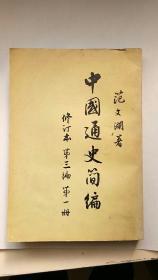 范文澜著
中國通史简編
修订本 第三編 第一册